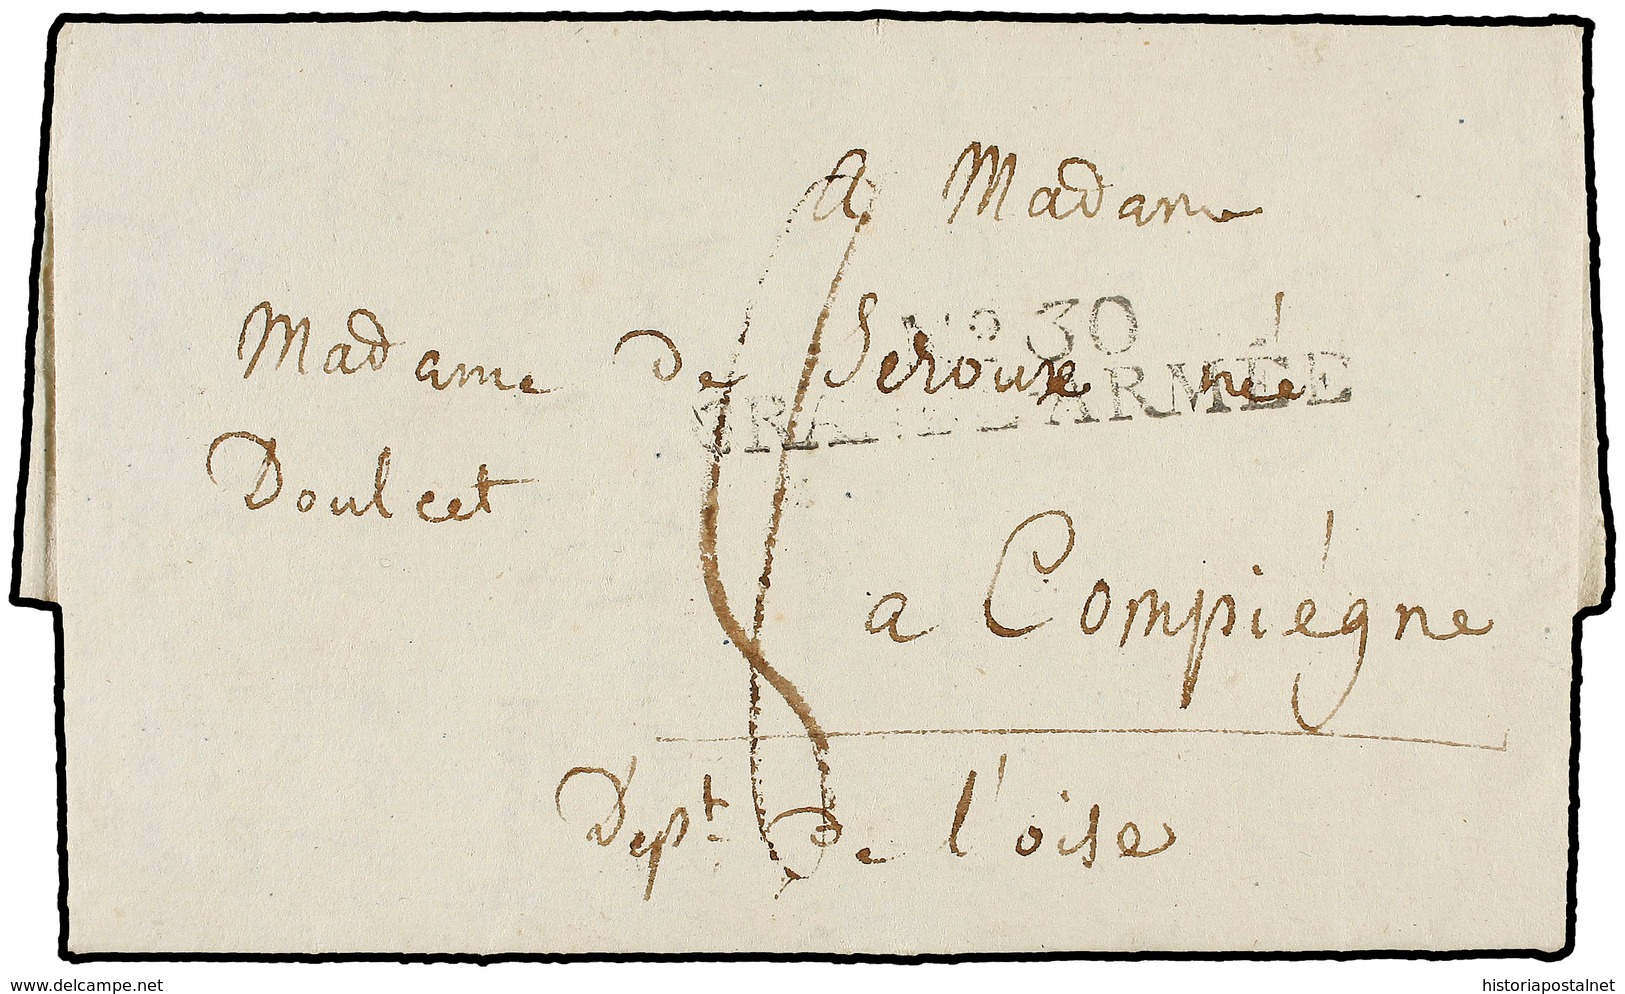 a Madame
N° 30
Madame de Seroux née
GRANDE ARMÉE
Doulcet
a Compiégne
Dept de l'oise
8
www.delcampe.net
historiapostalnet